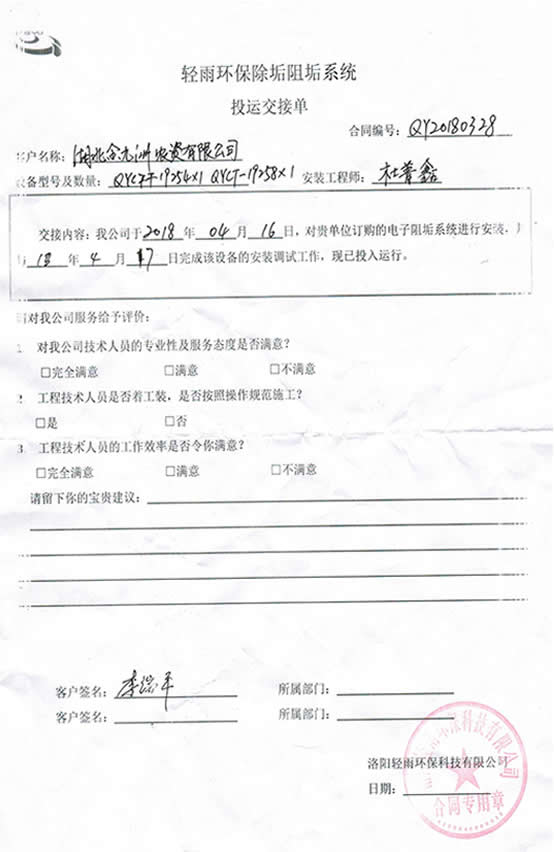 轻雨环保除垢阻垢系统
投运交接单
合同编号：QY20180328
客户名称：湖北金九洲农资有限公司
设备型号及数量：QYCT-19254×1 QYCT-19258×1 安装工程师：杜普鑫
交接内容：我公司于2018年04月16日，对贵单位订购的电子阻垢系统进行安装，
18年4月17日完成该设备的安装调试工作，现已投入运行。
对我公司服务给予评价：
1 对我公司技术人员的专业性及服务态度是否满意？
□完全满意 □满意 □不满意
2 工程技术人员是否着工装，是否按照操作规范施工？
□是 □否
3 工程技术人员的工作效率是否令你满意？
□完全满意 □满意 □不满意
请留下你的宝贵建议：
客户签名：李瑞平 所属部门：
客户签名： 所属部门：
洛阳轻雨环保科技有限公司
日期：
环保科技有限公司
合同专用章